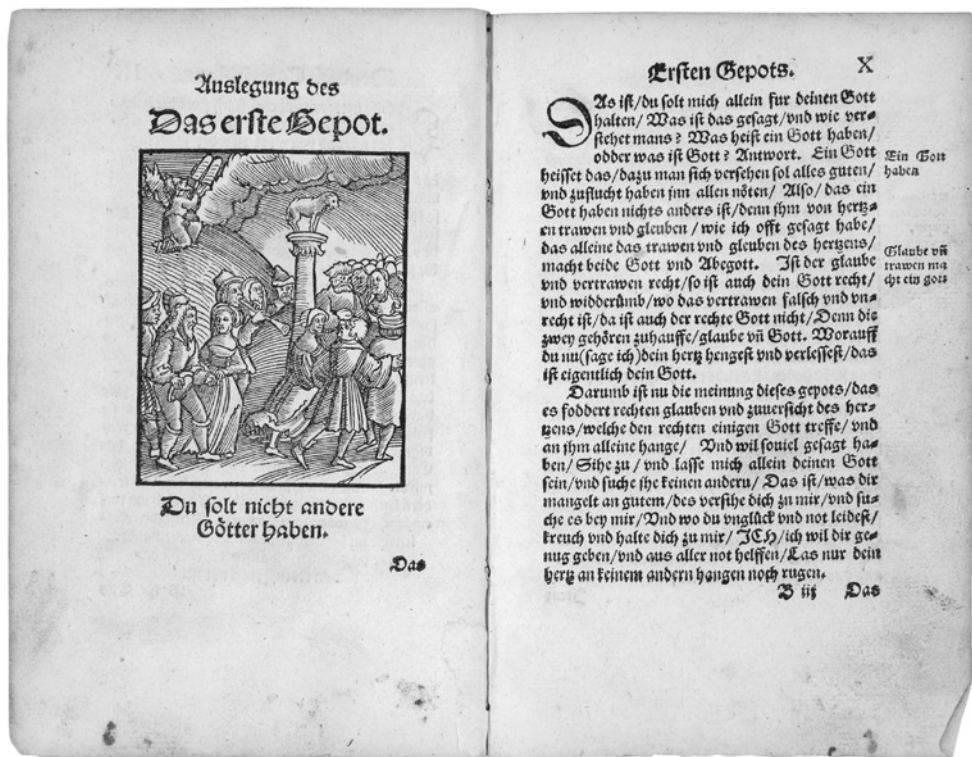 Auslegung des
Das erste Gepot.
Du solt nicht andere
Götter haben.
Das
Ersten Gepots.
X
DAs ist/du solt mich allein fur deinen Gott
halten/ Was ist das gesagt/vnd wie ver⸗
stehet mans? Was heist ein Gott haben/
odder was ist Gott? Antwort. Ein Gott
heisset das/dazu man sich versehen sol alles guten/
vnd zuflucht haben jnn allen nöten/ Also/ das ein
Gott haben nichts anders ist/denn jhm von hertz⸗
en trawen vnd gleuben / wie ich offt gesagt habe/
das alleine das trawen vnd gleuben des hertzens/
macht beide Gott vnd Abegott. Ist der glaube
vnd vertrawen recht/so ist auch dein Gott recht/
vnd widderümb/wo das vertrawen falsch vnd vn⸗
recht ist/da ist auch der rechte Gott nicht/Denn die
zwey gehören zuhauffe/glaube vñ Gott. Worauff
du nu(sage ich)dein hertz hengest vnd verlessest/das
ist eigentlich dein Gott.
Darumb ist nu die meinung dieses gepots/das
es foddert rechten glauben vnd zuuersicht des her⸗
tzens/welche den rechten einigen Gott treffe/ vnd
an jhm alleine hange/ Vnd wil souiel gesagt ha⸗
ben/ Sihe zu / vnd lasse mich allein deinen Gott
sein/vnd suche jhe keinen anderu/ Das ist/was dir
mangelt an gutem/des versihe dich zu mir/vnd su⸗
che es bey mir/Vnd wo du vnglück vnd not leidest/
kreuch vnd halte dich zu mir/ ICH/ich wil dir ge⸗
nug geben/vnd aus aller not helffen/Las nur dein
hertz an keinem andern hangen noch rugen.
B iij Das
Ein Gott
haben
Glaube vñ
trawen ma
cht ein gott